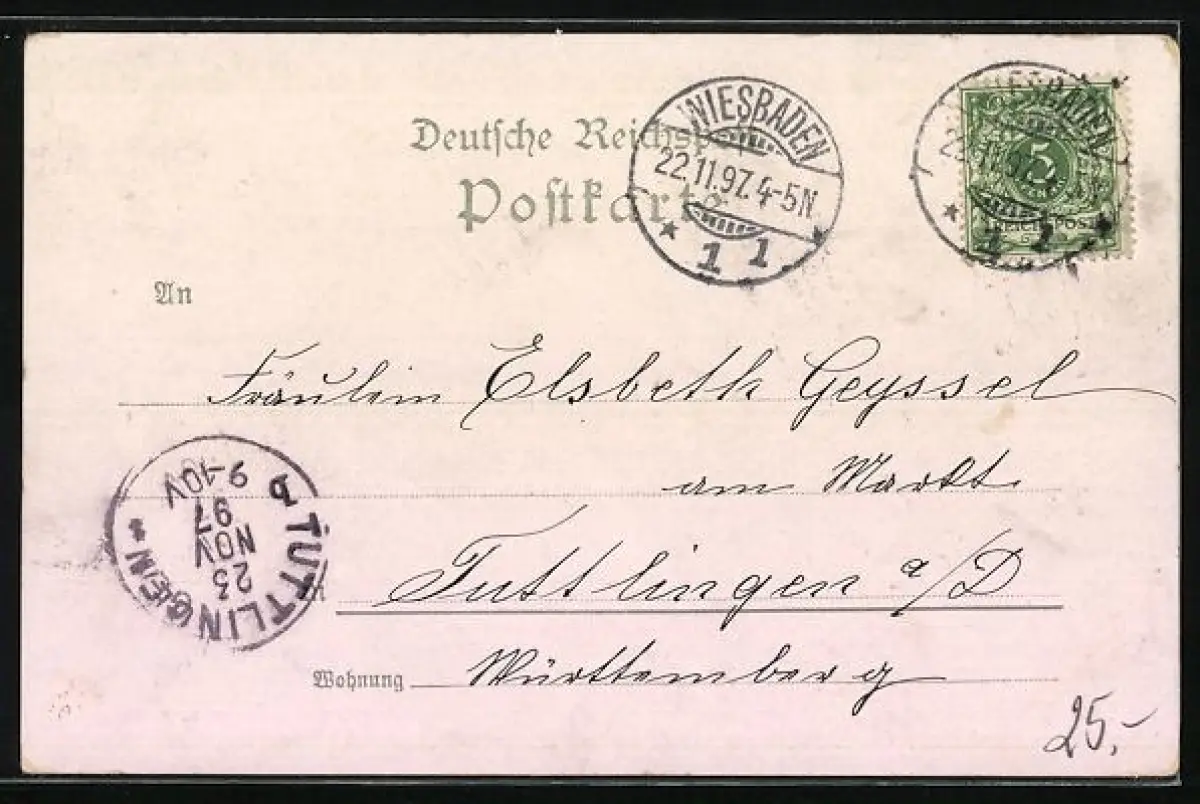 Deutsche Reichspost
Postkarte
WIESBADEN
22.11.97. 4-5N.
* 1 1 *
WIESBADEN
5
REICHSPOST
An
Fräulein Elsbeth Geyssel
am Markt
Tuttlingen a/D
Württemberg
Wohnung
TUTTLINGEN
23
NOV
97
9-10V
25.-